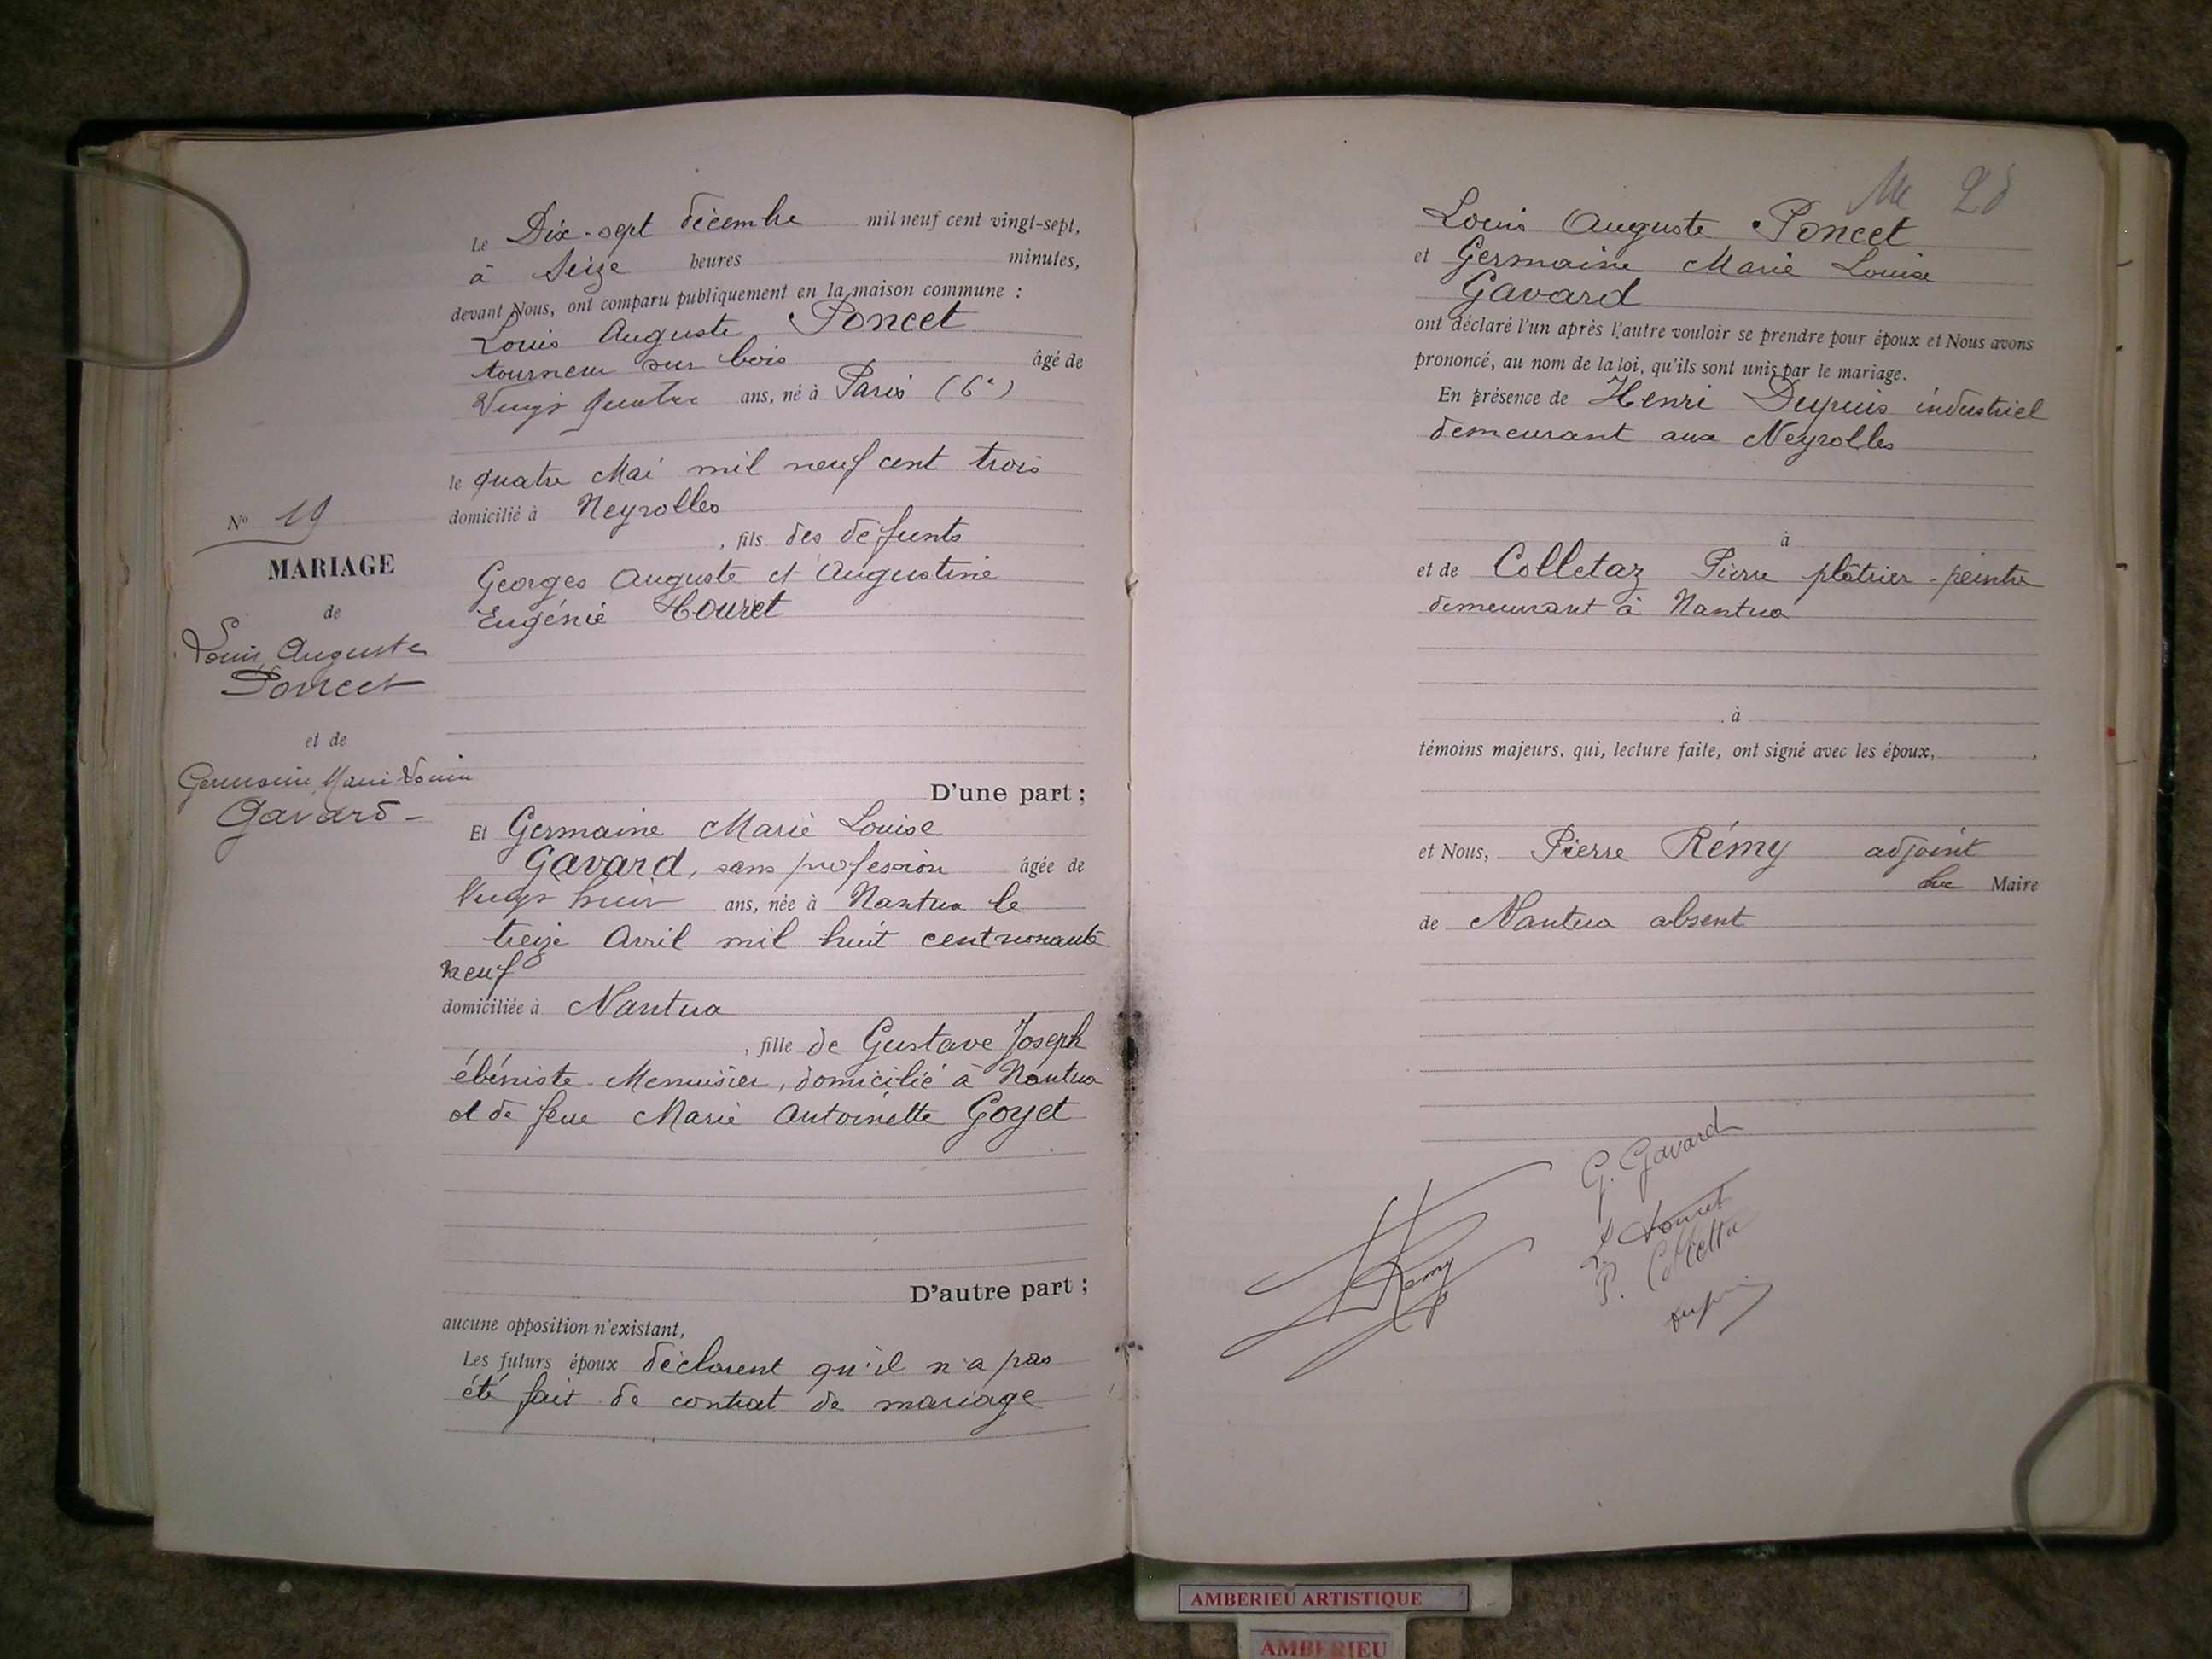 Le Dix-sept décembre mil neuf cent vingt-sept,
à Seize heures minutes,
devant Nous, ont comparu publiquement en la maison commune :
Louis Auguste Poncet
tourneur sur bois âgé de
Vingt quatre ans, né à Paris (6e)
le quatre Mai mil neuf cent trois
domicilié à Neyrolles
, fils des défunts
Georges Auguste et Augustine
Eugénie Houret
N° 19
MARIAGE
de
Louis Auguste
Poncet
et de
Germaine Marie Louise
Gavard -
D'une part ;
Et Germaine Marie Louise
Gavard, sans profession âgée de
Vingt huit ans, née à Nantua le
treize Avril mil huit cent nonante
neuf
domiciliée à Nantua
, fille de Gustave Joseph
ébéniste - Menuisier, domicilié à Nantua
et de feue Marie Antoinette Goyet
D'autre part ;
aucune opposition n'existant,
Les futurs époux déclarent qu'il n'a pas
été fait de contrat de mariage
Louis Auguste Poncet
et Germaine Marie Louise
Gavard
ont déclaré l'un après l'autre vouloir se prendre pour époux et Nous avons
prononcé, au nom de la loi, qu'ils sont unis par le mariage.
En présence de Henri Dupuis industriel
demeurant aux Neyrolles
à
et de Colletaz Pierre plâtrier-peintre
demeurant à Nantua
à
témoins majeurs, qui, lecture faite, ont signé avec les époux, ,
et Nous, Pierre Rémy adjoint
Maire
de Nantua absent
G. Gavard
Remy
AMBERIEU ARTISTIQUE
AMBERIEU